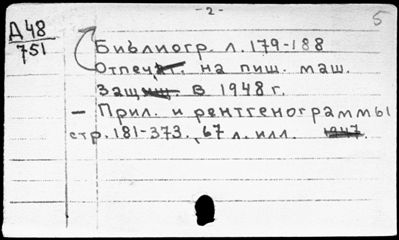 -2-
5
Д48
751
Библиогр. л. 179-188
Отпечат. на пиш. маш.
Защищ. в 1948 г.
— Прил. и рентгенограммы
стр. 181-373, 67 л. илл. 1947.